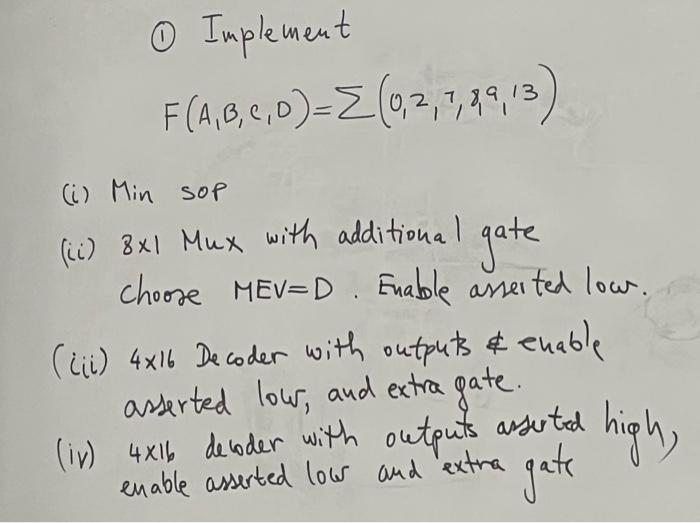 ① Implement
F(A,B,C,D)=Σ(0,2,7,8,9,13)
(i) Min SOP
(ii) 8x1 Mux with additional gate
Choose MEV=D. Enable asserted low.
(iii) 4x16 Decoder with outputs & enable
asserted low, and extra gate.
(iv) 4x16 decoder with outputs asserted high,
enable asserted low and extra gate